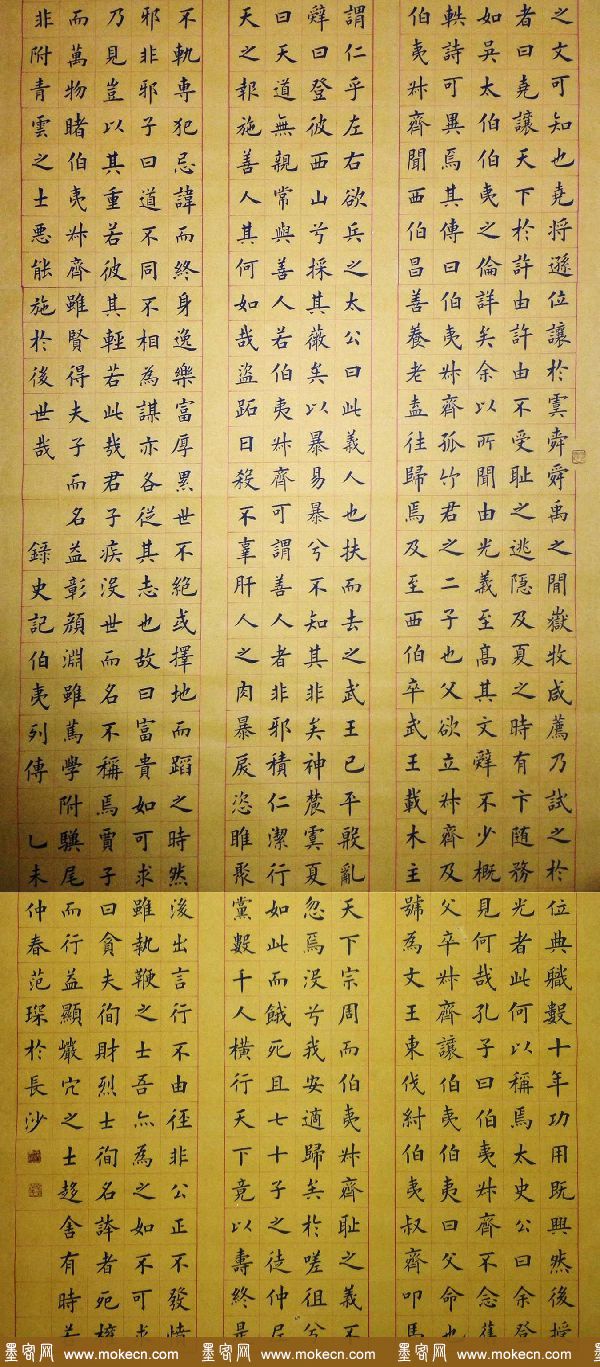 之文可知也堯將遜位讓於虞舜舜禹之間嶽牧咸薦乃試之於位典職數十年功用既興然後授
者曰堯讓天下於許由許由不受恥之逃隱及夏之時有卞随務光者此何以稱焉太史公曰余登
如吳太伯伯夷之倫詳矣余以所聞由光義至高其文辤不少概見何哉孔子曰伯夷叔齊不念舊
軼詩可異焉其傳曰伯夷叔齊孤竹君之二子也父欲立叔齊及父卒叔齊讓伯夷伯夷曰父命也
伯夷叔齊聞西伯昌善養老盍往歸焉及至西伯卒武王載木主號為文王東伐紂伯夷叔齊叩馬
謂仁乎左右欲兵之太公曰此義人也扶而去之武王已平殷亂天下宗周而伯夷叔齊恥之義不
辤曰登彼西山兮採其薇矣以暴易暴兮不知其非矣神農虞夏忽焉没兮我安適歸矣於嗟徂兮
曰天道無親常與善人若伯夷叔齊可謂善人者非邪積仁潔行如此而餓死且七十子之徒仲尼
天之報施善人其何如哉盜跖日殺不辜肝人之肉暴戾恣睢聚黨數千人橫行天下竟以壽終是
不軌專犯忌諱而終身逸樂富厚累世不絶或擇地而蹈之時然後出言行不由徑非公正不發憤
邪非邪子曰道不同不相為謀亦各從其志也故曰富貴如可求雖執鞭之士吾亦為之如不可求
乃見豈以其重若彼其輕若此哉君子疾没世而名不稱焉賈子曰貪夫徇財烈士徇名誇者死權
而萬物睹伯夷叔齊雖賢得夫子而名益彰顏淵雖篤學附驥尾而行益顯巖穴之士趍舍有時若
非附青雲之士悪能施於後世哉 錄史記伯夷列傳 乙未仲春范琛於長沙
墨客网 www.mokecn.com 墨客网 www.mokecn.com 墨客网 www.mokecn.com